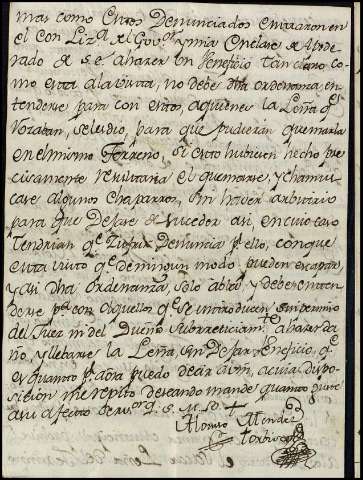 mas como estos Denunciados entraron en
el con Liz.ª del Gov.or y mia en clase de Apode
rado de S.E. a hacer un beneficio tan claro co
mo esta a la vista, no debe dha ordenanza en
tenderse para con estos, a quienes la Leña q.e
Rozaban, se les dio, para que pudieran quemarla
en el mismo Terreno, si esto hubiesen hecho pre
cisamente resultaria el quemarse, y chamus
carse algunos chaparros, sin haver arbitrio
para que Dejase de suceder asi, en cuio caso
tendrian q.e sufrir Denuncia p.r ello, con que
esta visto q.e de ningun modo pueden escapar,
y asi dha ordenanza, solo abla, y debe enten
derse p.a con aquellos q.e se introducen sin permiso
del Juez ni del Dueño a hacer da
no, y llebarse la Leña, sin Dejar Beneficio, q.e
es quanto p.r aora puedo decir a Vm, a cuia dispo
sicion me repito deseando mande quanto guste
a su afecto serv.or q. s. m. b.
Alonso Mendez